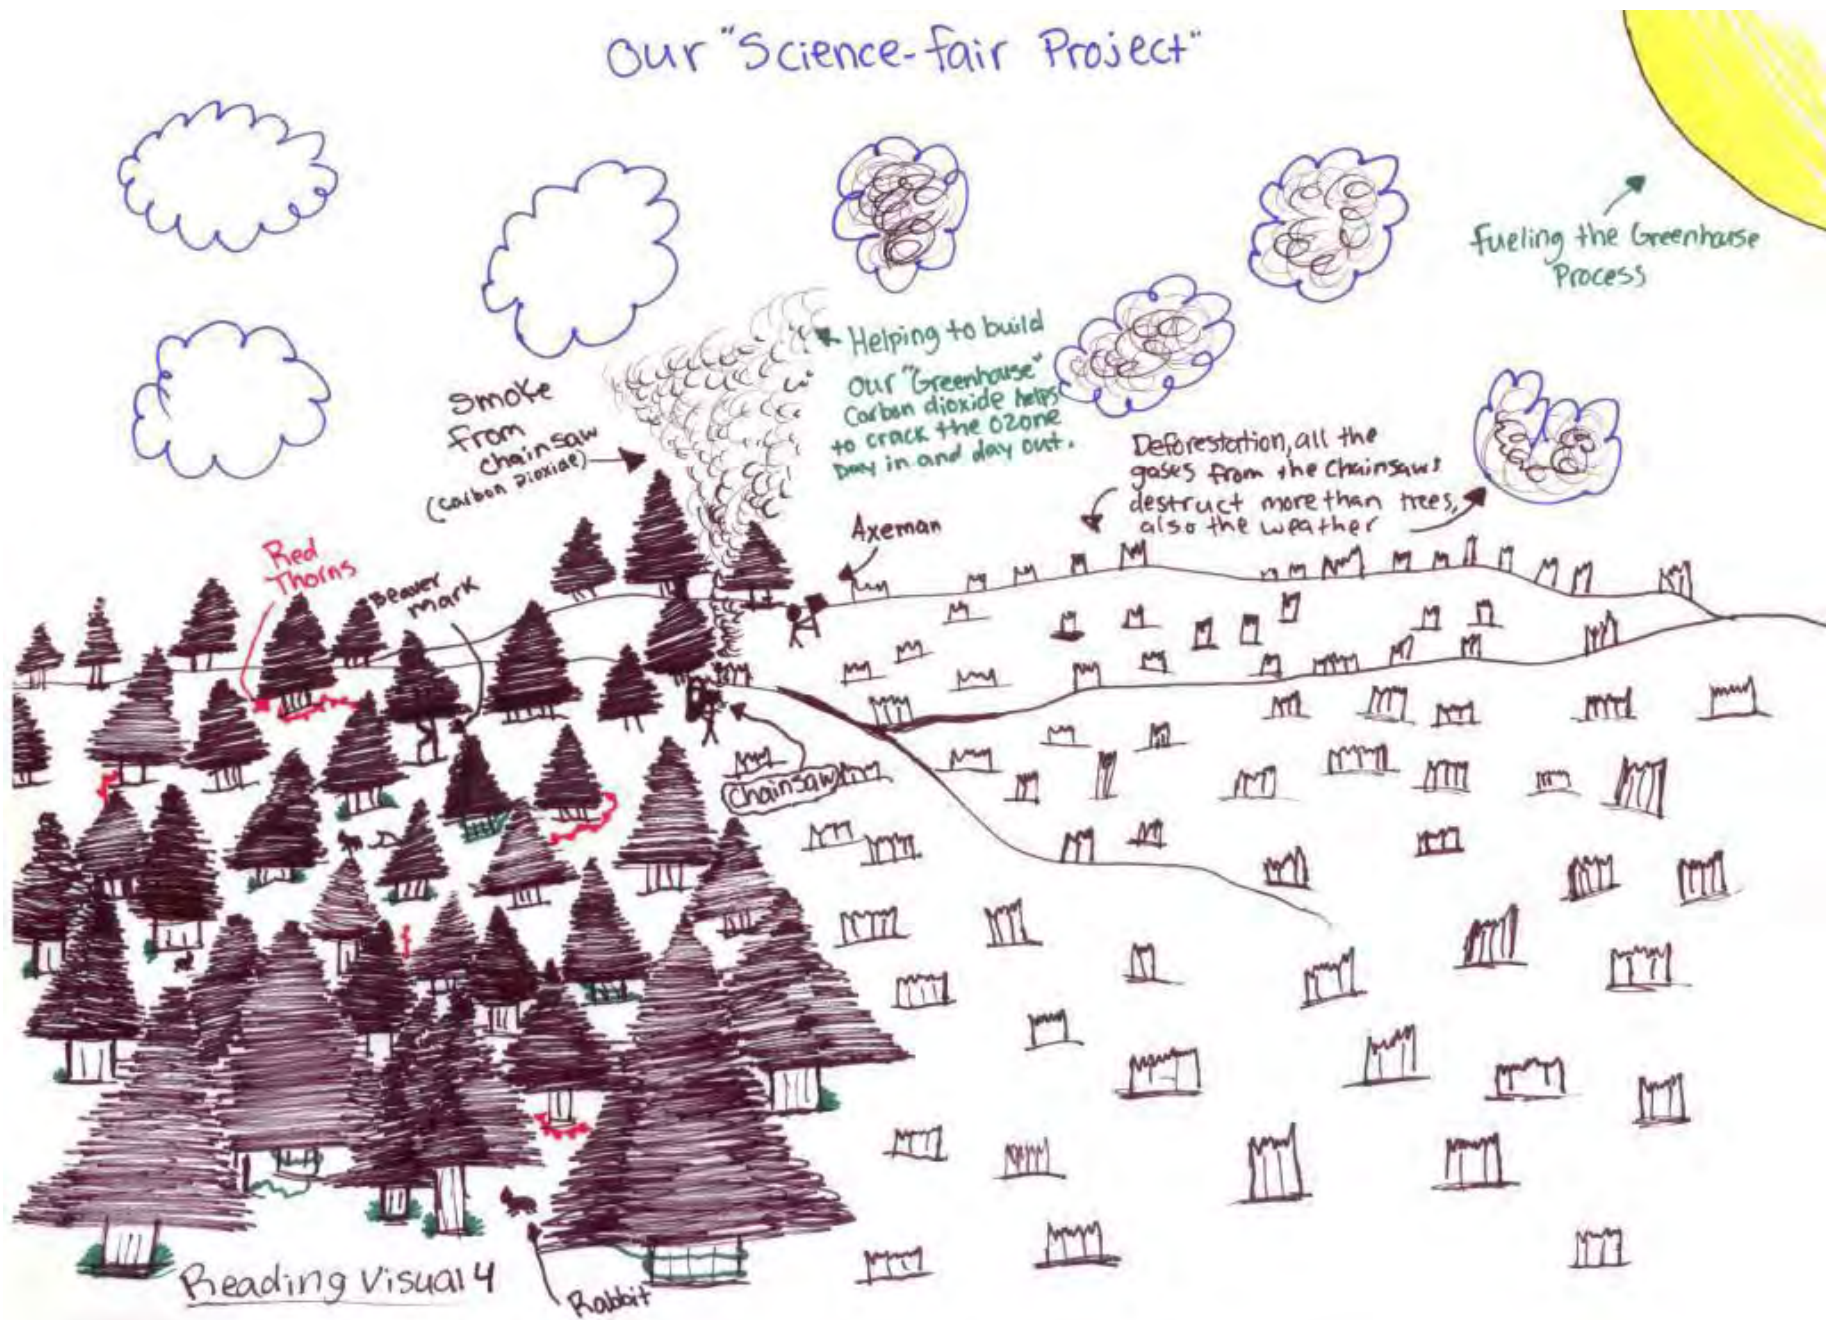 Our "Science-fair Project"
Fueling the Greenhouse
Process
Helping to build
Our "Greenhouse"
Carbon dioxide helps
to crack the Ozone
Day in and day out.
Smoke
from
chainsaw
(Carbon Dioxide)
Deforestation, all the
gases from the Chainsaws
destruct more than trees,
also the weather
Axeman
Red
Thorns
Beaver
mark
Chainsaw
Reading Visual 4
Rabbit